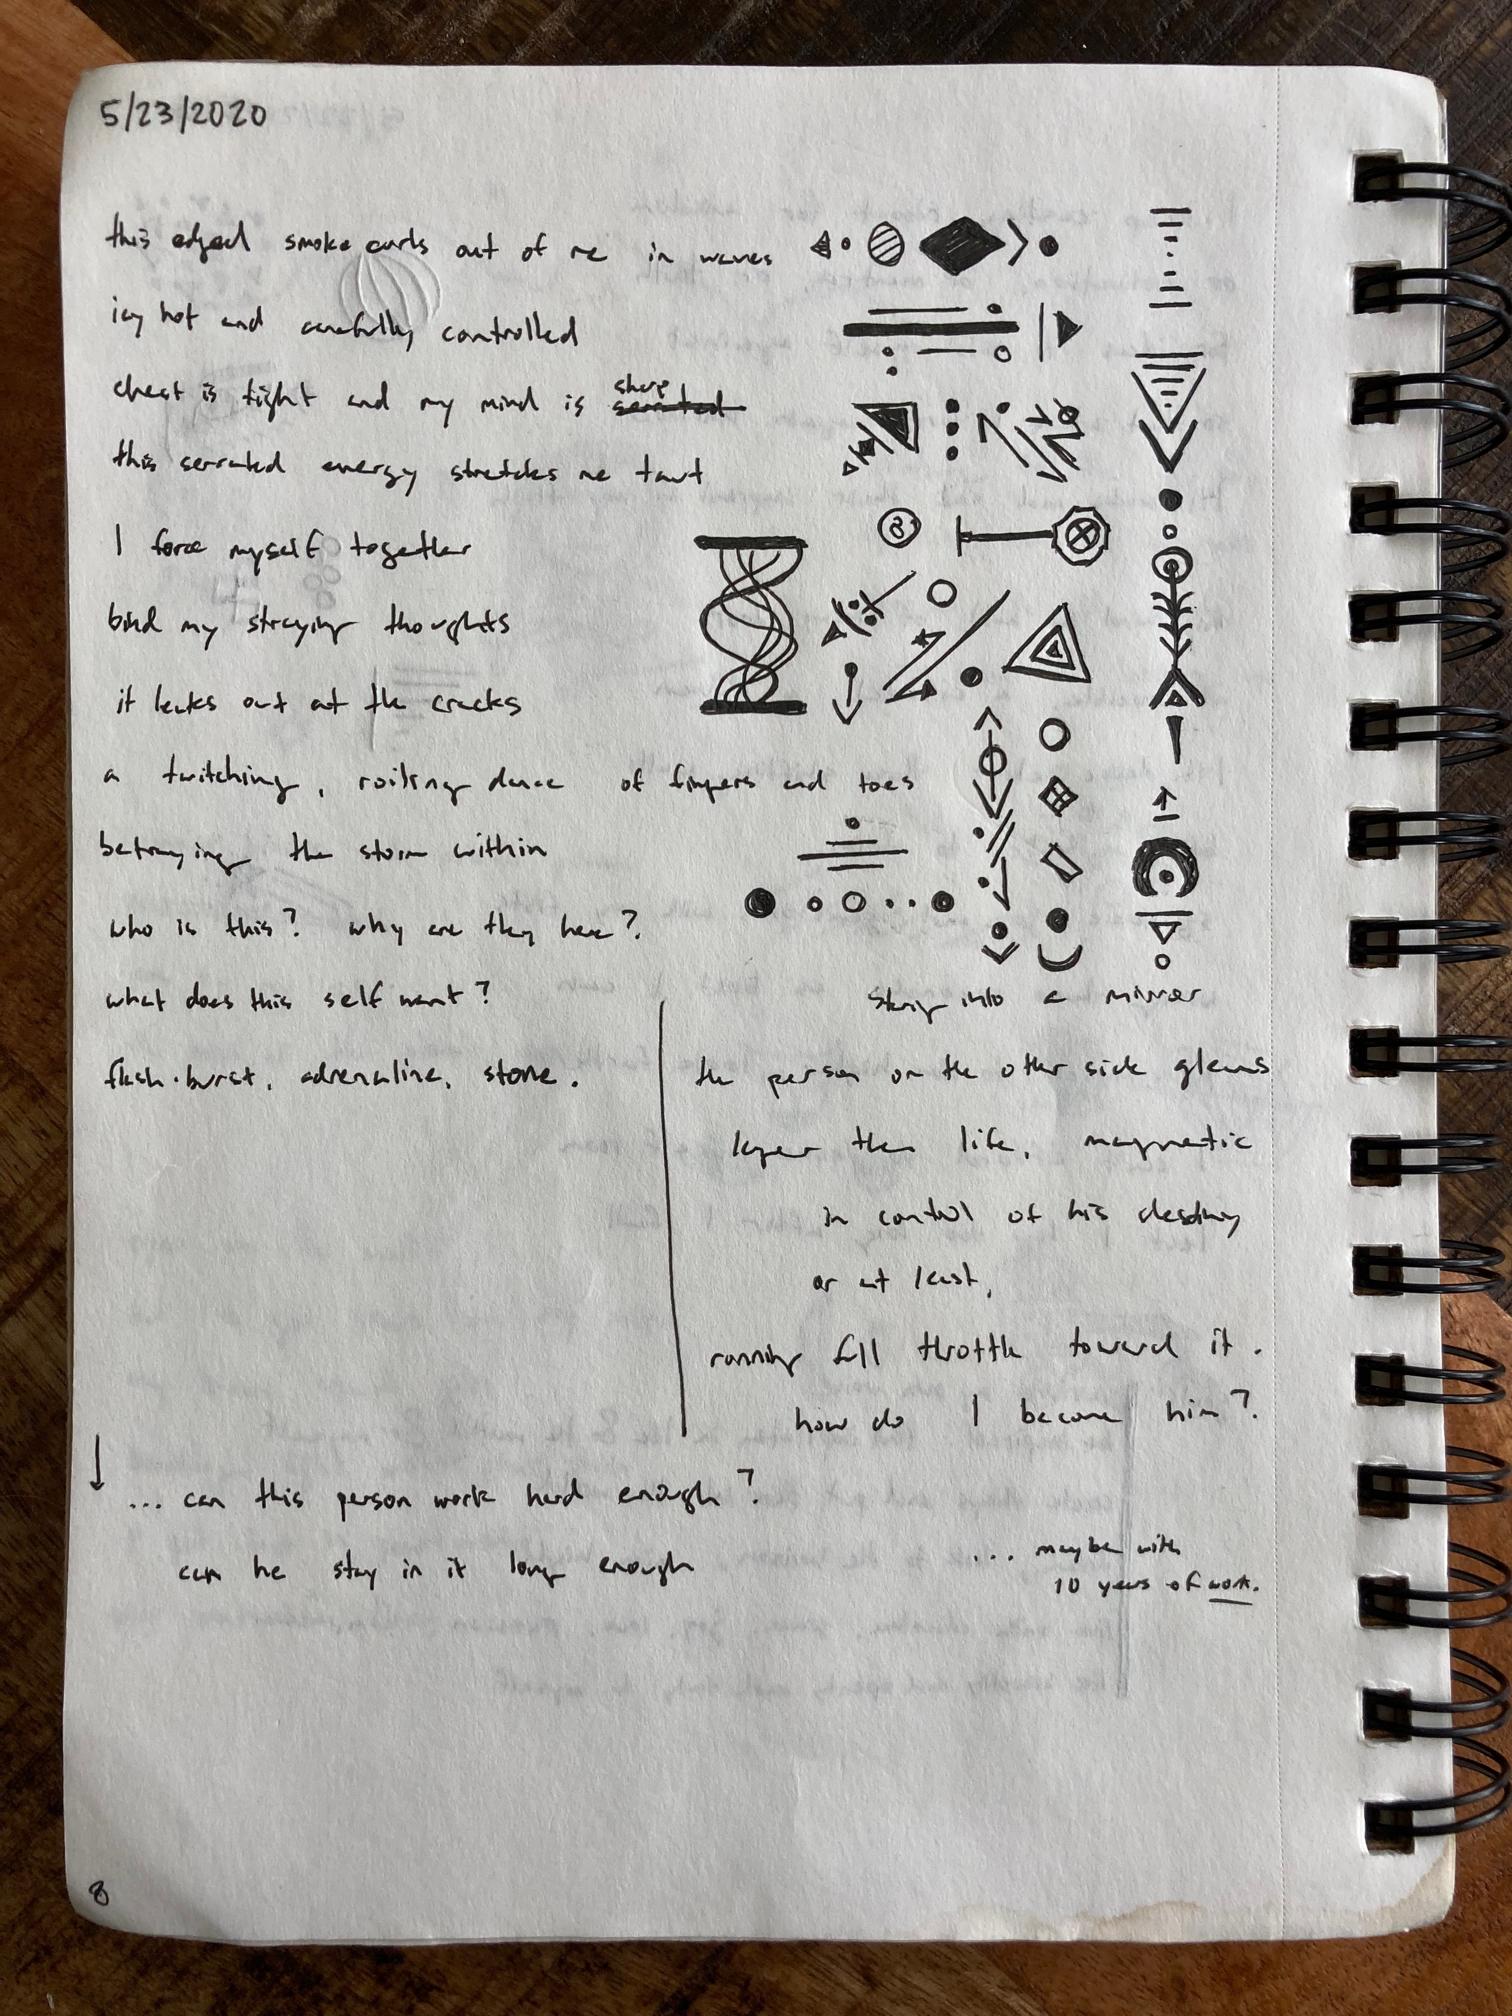 5/23/2020
this edged smoke curls out of me in waves
icy hot and carefully controlled
chest is tight and my mind is sharp serrated
this serrated energy stretches me taut
I force myself together
bind my straying thoughts
it leaks out at the cracks
a twitching, roiling dance of fingers and toes
betraying the storm within
who is this? why are they here?
what does this self want?
flash-burst, adrenaline, stone.
staring into a mirror
the person on the other side gleams
larger than life, magnetic
in control of his destiny
or at least,
running full throttle toward it.
how do I become him?
... can this person work hard enough?
can he stay in it long enough
... maybe with
10 years of work.
8